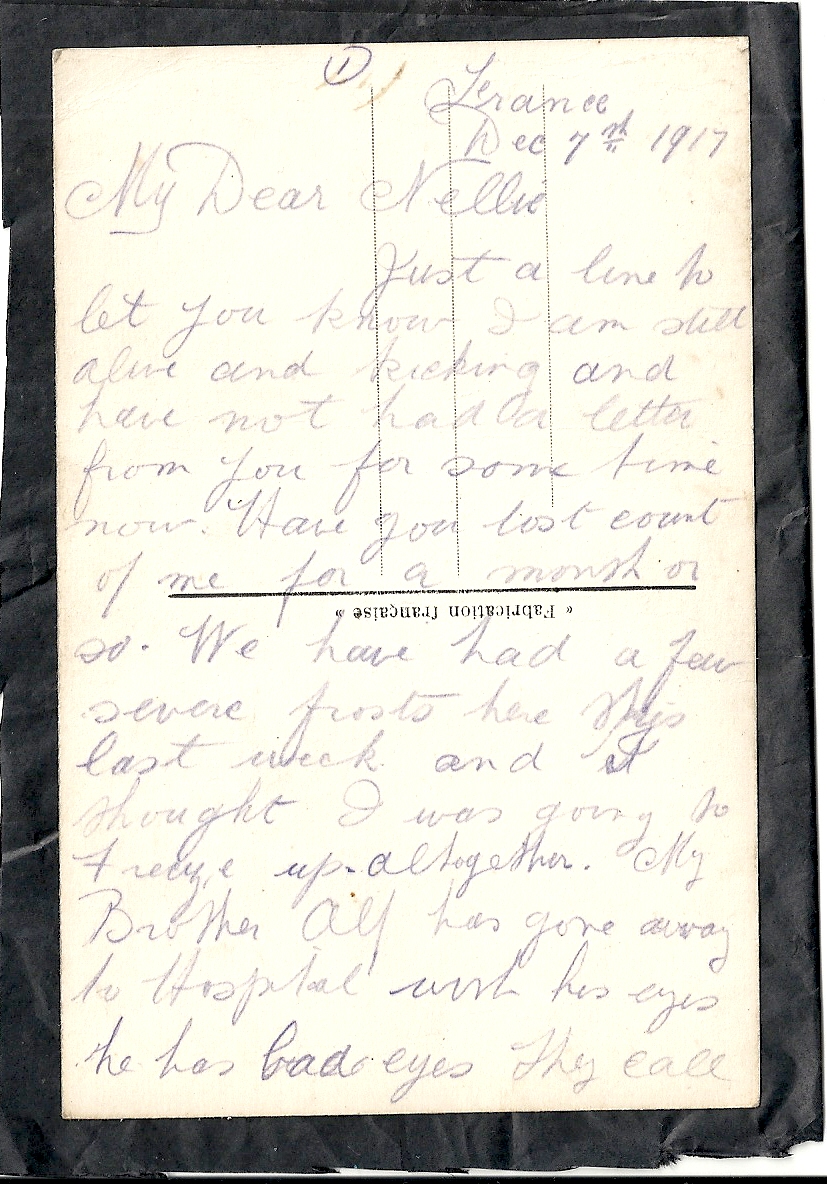 ①
France
Dec 7th 1917
My Dear Nellie
Just a line to
let you know I am still
alive and kicking and
have not had a letter
from you for some time
now. Have you lost count
of me for a month or
« Fabrication française »
so. We have had a few
severe frosts here this
last week and I
thought I was going to
freeze up altogether. My
Brother Alf has gone away
to Hospital with his eyes
he has bad eyes they call